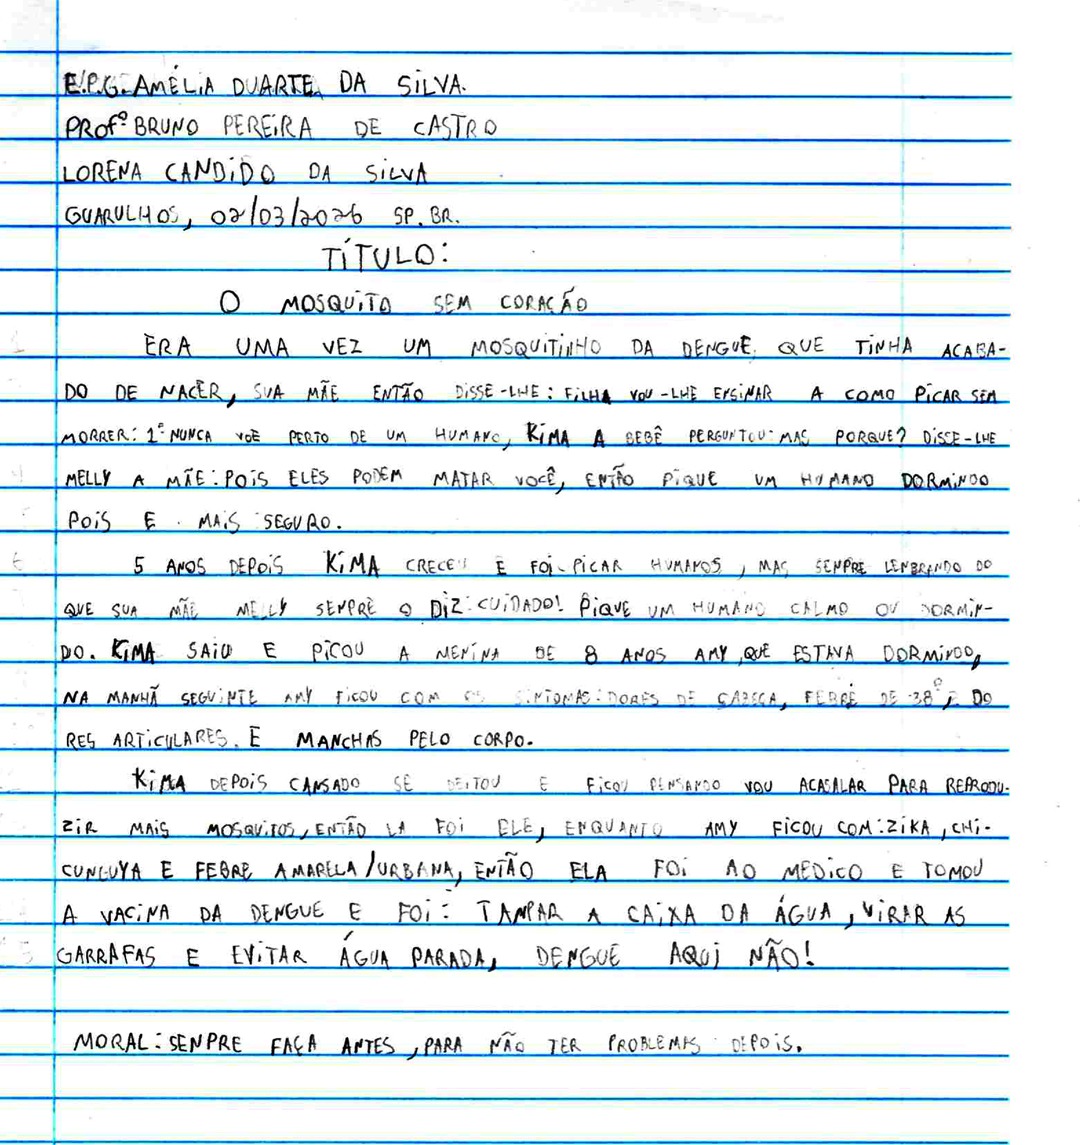 E.P.G. AMÉLIA DUARTE DA SILVA.
PROFº BRUNO PEREIRA DE CASTRO
LORENA CANDIDO DA SILVA
GUARULHOS, 02/03/2026 SP. BR.
TÍTULO:
O MOSQUITO SEM CORAÇÃO
ERA UMA VEZ UM MOSQUITINHO DA DENGUE, QUE TINHA ACABA-
DO DE NACER, SUA MÃE ENTÃO DISSE-LHE: FILHA VOU-LHE ENSINAR A COMO PICAR SEM
MORRER: 1º NUNCA VOE PERTO DE UM HUMANO, KIMA A BEBÊ PERGUNTOU: MAS PORQUE? DISSE-LHE
MELLY A MÃE: POIS ELES PODEM MATAR VOCÊ, ENTÃO PIQUE UM HUMANO DORMINDO
POIS E MAIS SEGURO.
5 ANOS DEPOIS KIMA CRECEU E FOI PICAR HUMANOS, MAS SENPRE LENBRANDO DO
QUE SUA MÃE MELLY SENPRE O DIZ: CUIDADO! PIQUE UM HUMANO CALMO OU DORMIN-
DO. KIMA SAIU E PICOU A MENINA DE 8 ANOS AMY, QUE ESTAVA DORMINDO,
NA MANHÃ SEGUINTE AMY FICOU COM OS SINTOMAS: DORES DE CABEÇA, FEBRE DE 38° E DO
RES ARTICULARES. E MANCHAS PELO CORPO.
KIMA DEPOIS CANSADO SE DEITOU E FICOU PENSANDO VOU ACASALAR PARA REPRODU-
ZIR MAIS MOSQUITOS, ENTÃO LA FOI ELE, ENQUANTO AMY FICOU COM: ZIKA, CHI-
CUNGUYA E FEBRE AMARELA/URBANA, ENTÃO ELA FOI AO MEDICO E TOMOU
A VACINA DA DENGUE E FOI: TANPAR A CAIXA DA ÁGUA, VIRAR AS
GARRAFAS E EVITAR ÁGUA PARADA, DENGUE AQUI NÃO!
MORAL: SENPRE FAÇA ANTES, PARA NÃO TER PROBLEMAS DEPOIS.